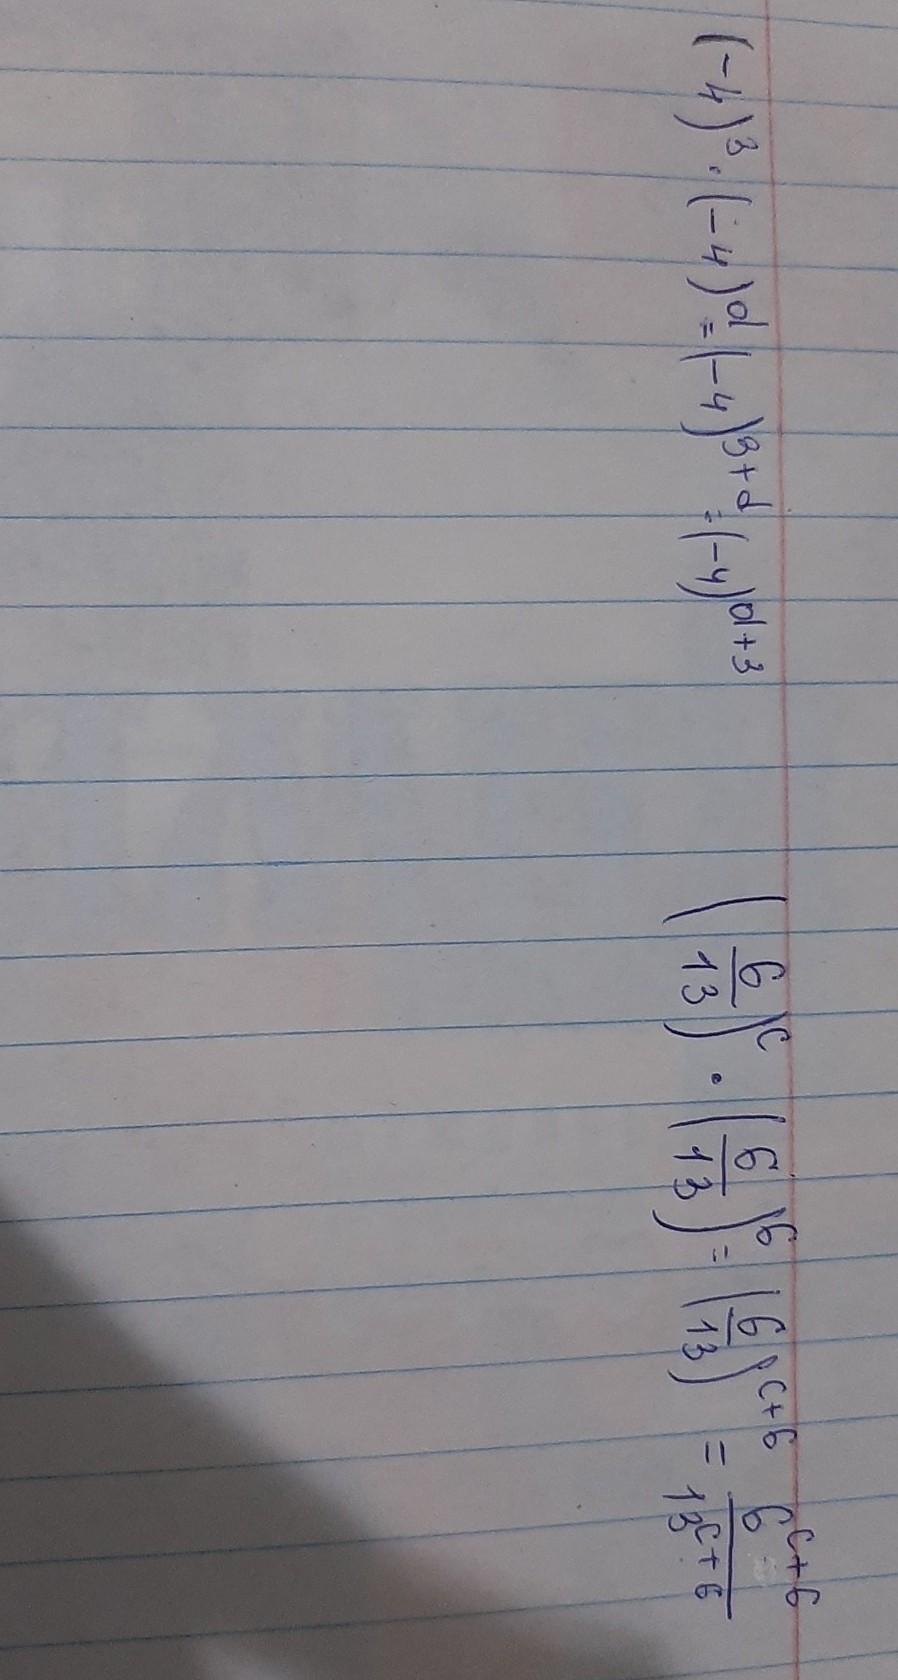 (-4)³ · (-4)ᵈ = (-4)³⁺ᵈ = (-4)ᵈ⁺³
(6/13)ᶜ · (6/13)⁶ = (6/13)ᶜ⁺⁶ = 6ᶜ⁺⁶/13ᶜ⁺⁶